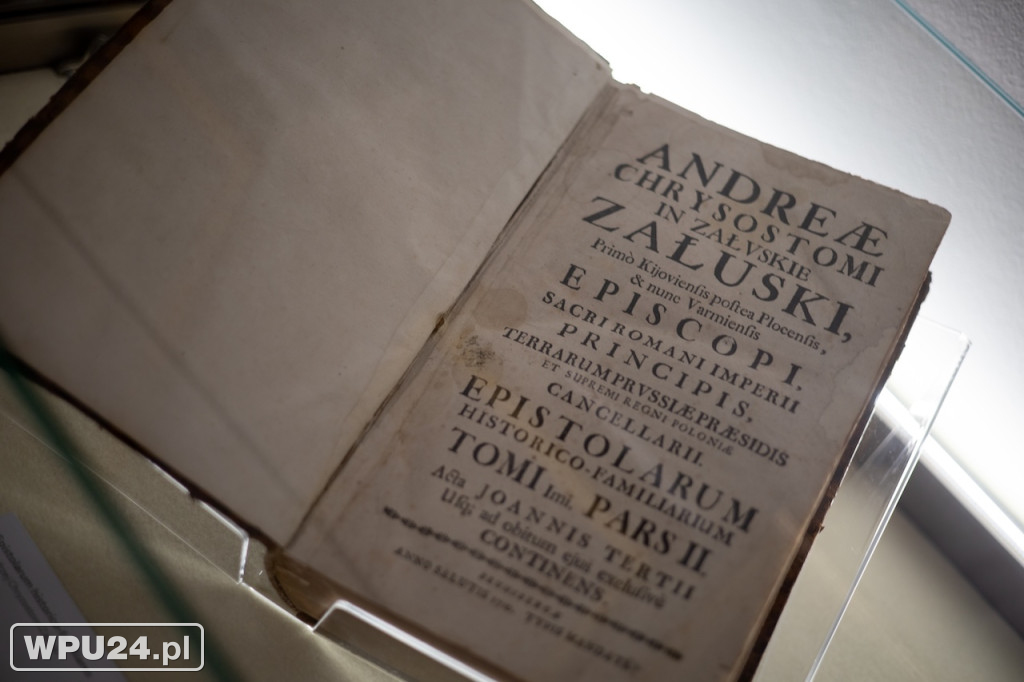 ANDREÆ
CHRYSOSTOMI
IN ZAŁVSKIE
ZAŁUSKI,
Primò Kijoviensis postea Plocensis,
& nunc Varmiensis
EPISCOPI.
SACRI ROMANI IMPERII
PRINCIPIS,
TERRARUM PRVSSIÆ PRÆSIDIS
ET SUPREMI REGNI POLONIÆ
CANCELLARII.
EPISTOLARUM
HISTORICO-FAMILIARIUM
TOMI Imi. PARS II.
Acta JOANNIS TERTII
Usq; ad obitum ejus exclusivè
CONTINENS.
ANNO SALUTIS
WPU24.pl